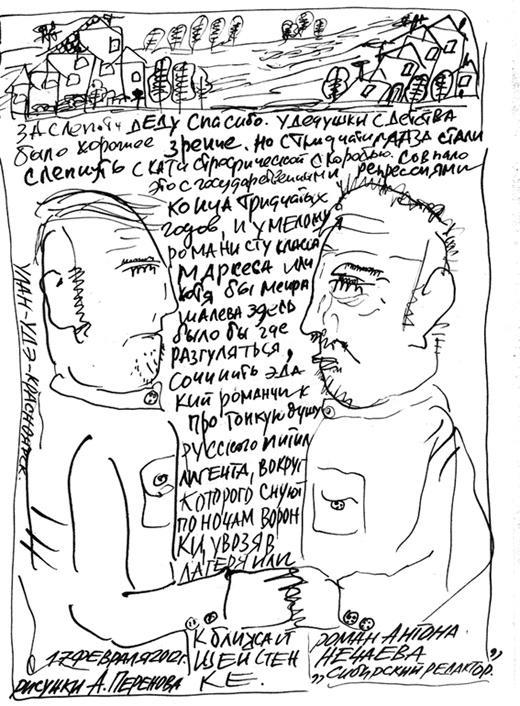 ЗА СЛЕПОТУ ДЕДУ СПАСИБО. У ДЕДУШКИ С ДЕТСТВА
БЫЛО ХОРОШЕЕ ЗРЕНИЕ. НО С ТРИДЦАТИ ГЛАЗА СТАЛИ
СЛЕПНУТЬ С КАТАСТРОФИЧЕСКОЙ СКОРОСТЬЮ. СОВПАЛО
ЭТО С ГОСУДАРСТВЕННЫМИ РЕПРЕССИЯМИ
КОНЦА ТРИДЦАТЫХ
ГОДОВ, И УМЕЛОМУ
РОМАНИСТУ КЛАССА
МАРКЕСА ИЛИ
ХОТЯ БЫ МЕИРА
ШАЛЕВА ЗДЕСЬ
БЫЛО БЫ ГДЕ
РАЗГУЛЯТЬСЯ,
СОЧИНИТЬ ЭДА
КИЙ РОМАНЧИК
ПРО ТОНКУЮ ДУШУ
РУССКОГО ИНТИЛ
ЛИГЕНТА, ВОКРУГ
КОТОРОГО СНУЮТ
ПО НОЧАМ ВОРОН
КИ, УВОЗЯ В
ЛАГЕРЯ ИЛИ
К БЛИЖАЙ
ШЕЙ СТЕН
КЕ.
УЛАН-УДЭ-КРАСНОЯРСК.
17 ФЕВРАЛЯ
РИСУНКИ А. ПЕРЕНОВА
РОМАН АНТОНА
НЕЧАЕВА
„СИБИРСКИЙ РЕДАКТОР."